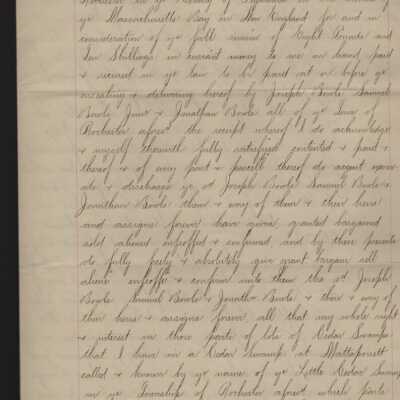 Rochester in ye County of Plymouth in the
ye Massachusetts Bay in New England for and in
consideration of ye full summe of Eight Pounds and
Ten Shillings in currant money to me in hand paid
& secured in ye law to be paid at or before ye
ensealing & delivering hereof by Joseph Bowle Samuel
Bowle Junr & Jonathan Bowle all of ye Town of
Rochester aforesd the receipt whereof I do acknowledge
& myself therewith fully satisfied contented & paid &
thereof & of every part & parcell thereof do acquit exoner-
ate & discharge ye sd Joseph Bowle Samuel Bowle &
Jonathan Bowle them & every of them & their heirs
and assigns forever have given granted bargained
sold aliened enfeoffed & confirmed, and by these presents
do fully freely & absolutely give grant bargain sell
aliene enfeoffe & confirm unto them the sd Joseph
Bowle Samuel Bowle & Jonathn Bowle & their & every of
their heirs & assigns forever all that my whole right
& interest in those parts of lots of Cedar Swamp
that I have in a Cedar Swamp at Mattapoisett
called & known by ye name of ye Little Cedar Swamp
in ye Township of Rochester aforesd which parts